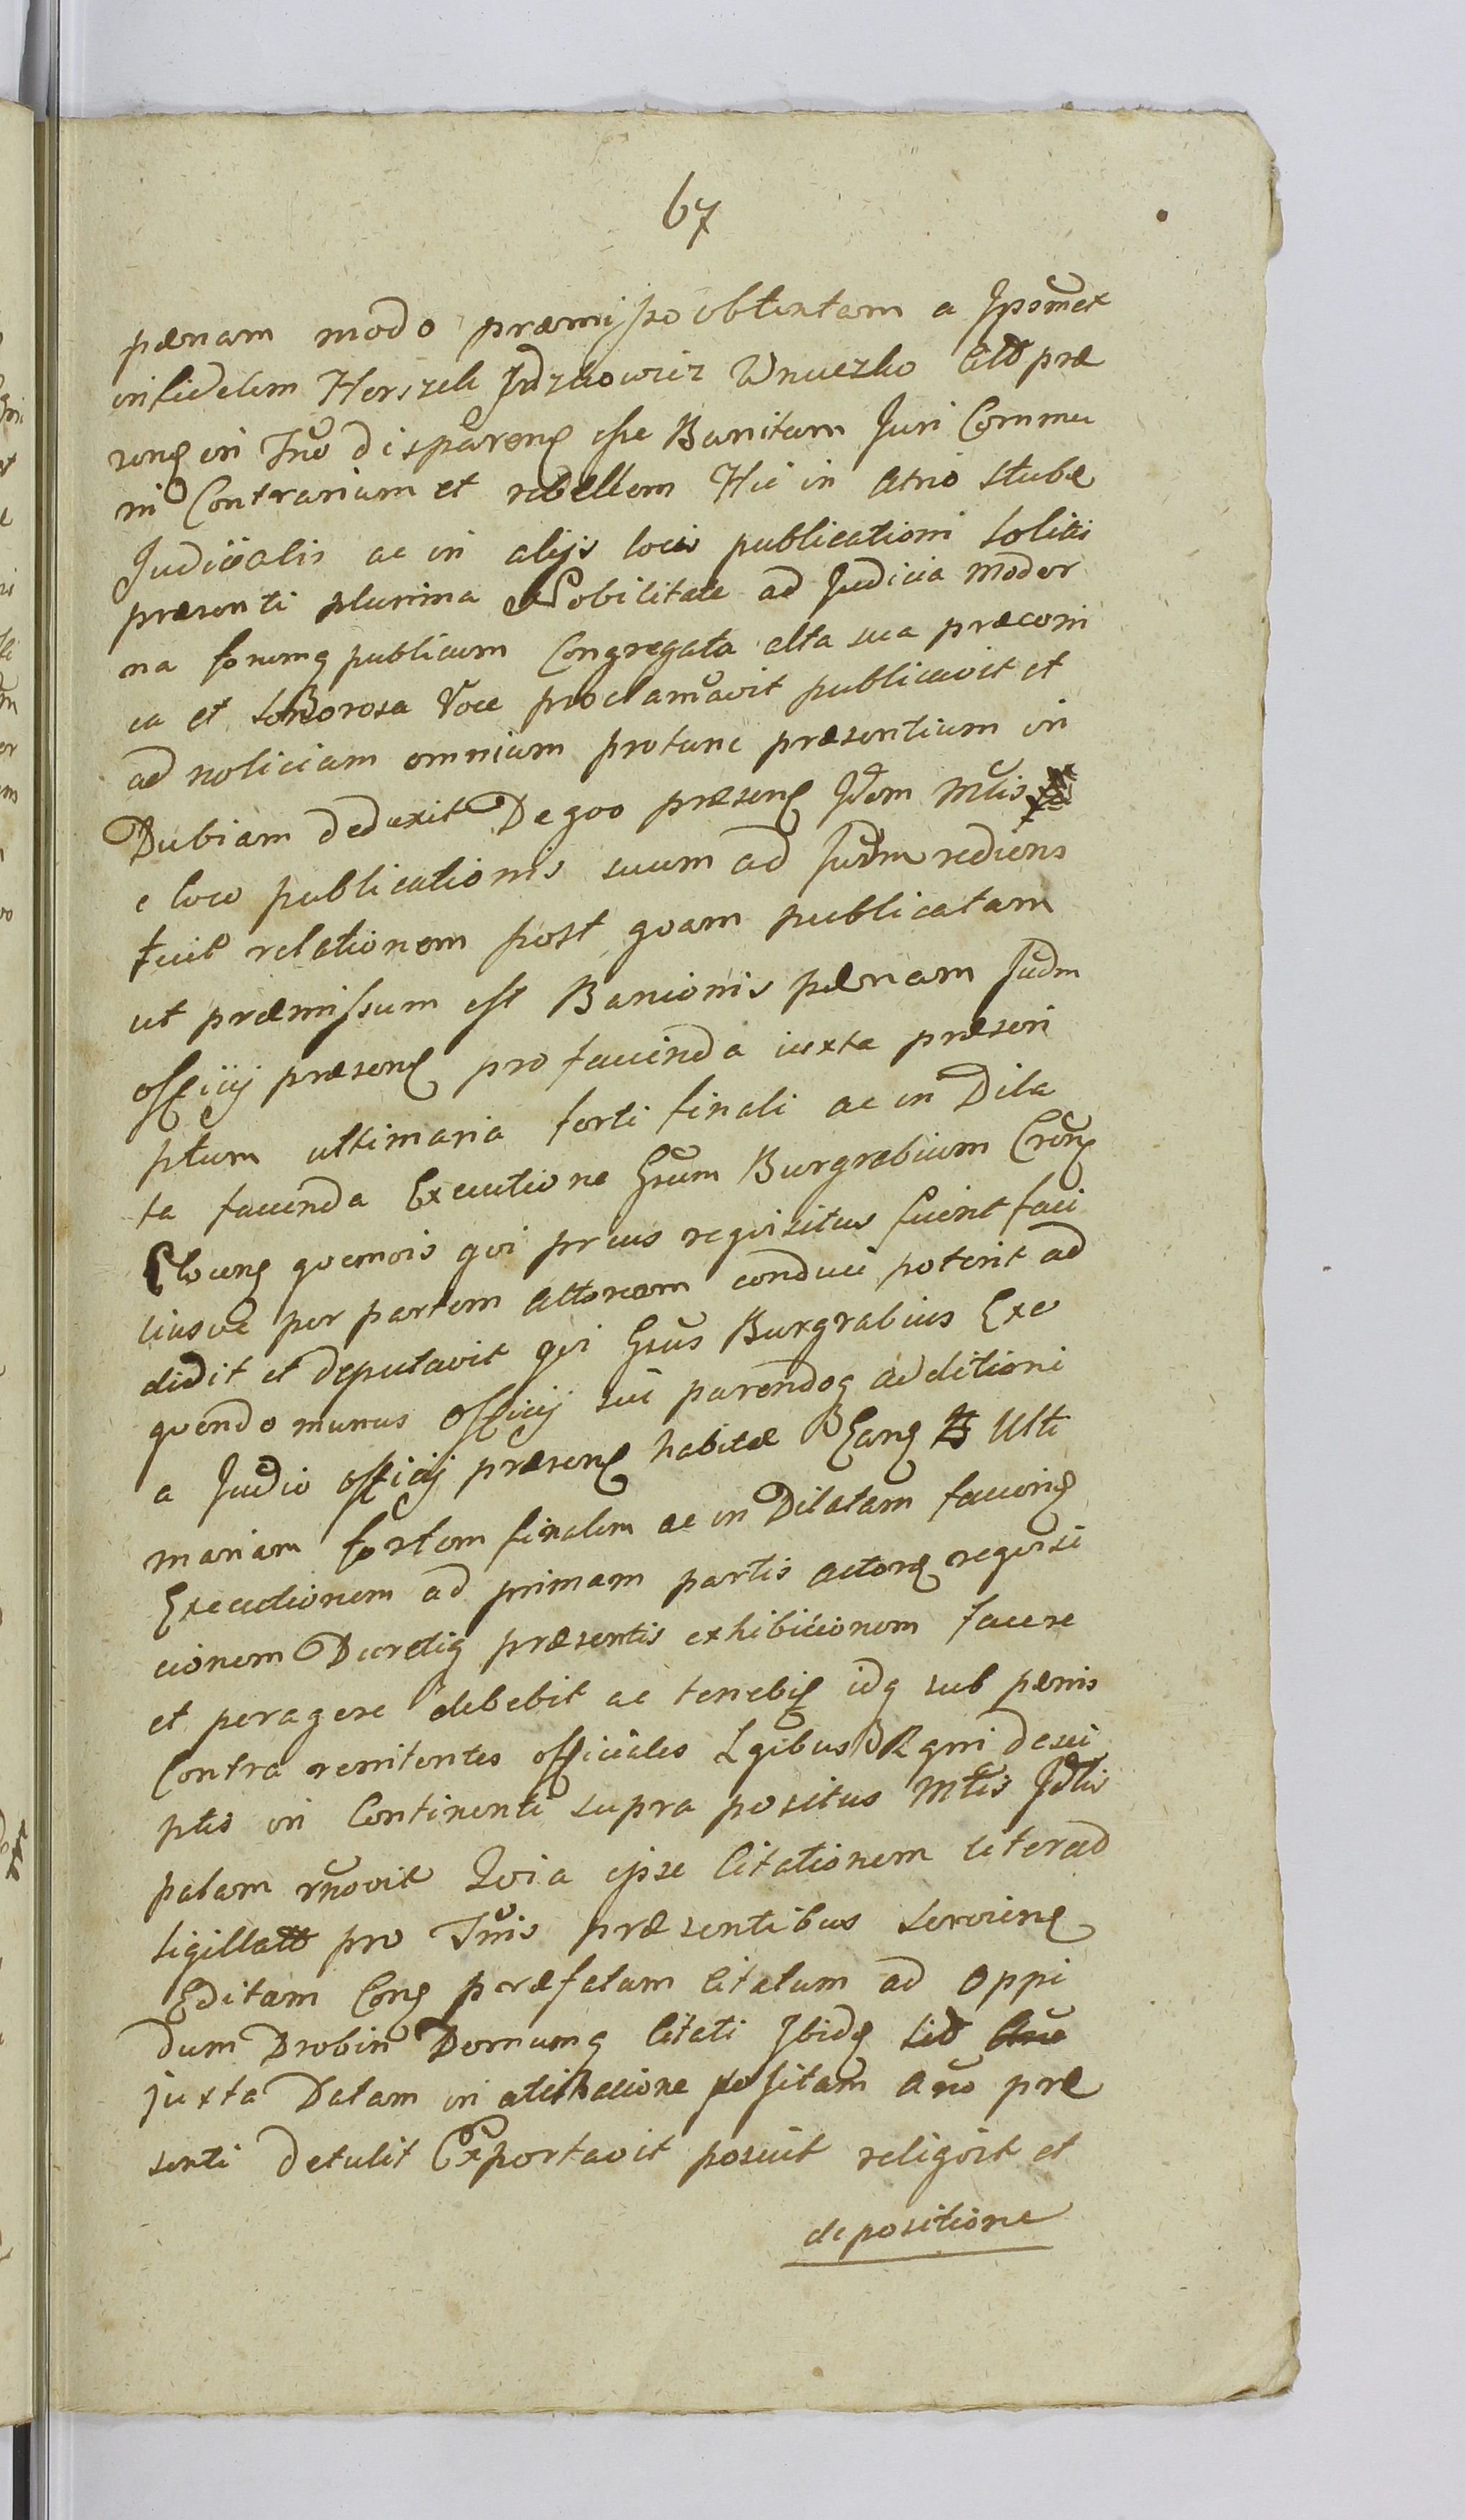 67
pænam modo præmisso obtentam a Ipsomet
infidelem Herszek Jdzkowicz Wnuczko Citō præ
senꝫ in Tnō disparenꝫ esse Banitam Juri Commu
ni Contrarium et rebellem Hic in Atrio stubæ
Judicialis ac in alijs locis publicationi solitis
præsenti plurima Nobilitate ad Judicia moder
na forumq publicum Congregata alta sua præconi
ca et sonorosa Voce proclamavit publicavit et
ad noticiam omnium protunc præsentium in
Dubiam deduxit De quo præsenꝫ Jdem Mlis
e loco publicationis suum ad Judm rediens
fecit relationem post quam publicatam
ut præmissum est Banionis pænam Judm
officij præsenꝫ pro facienda iuxta præscri
ptum ultimaria forti finali ac in Dila
ta facienda Executione Gsum Burgrabium Cronꝫ
Plocenꝫ quemvis qui prius reqvisitus fuerit faci
liusve per partem Actoream conduci poterit ad
didit et deputavit qui Gsus Burgrabius Exe
quendo munus officij sui parendoq additioni
a Judio officij præsenꝫ habitæ Eanꝫ Ulti
mariam fortem finalem ac in Dilatam faciong
Executionem ad primam partis Actoreꝫ reqvisi
cionem Decretiq præsentis exhibicionem facere
et peragere debebit ac tenebiꝫ idq sub pænis
Contra renitentes officiales Lgibus Rgni descri
ptis in Continenti supra positus Mlis Jdlis
palam rnovit Qvia ipse Citationem literad
sigillatt pro Tnis præsentibus servienꝫ
Editam Conꝫ præfatum Citatum ad Oppi
dum Drobin Domumq Citati Jbidꝫ
juxta Datam in positam Ano præ
senti detulit Exportavit posuit reliqvit et
depositione